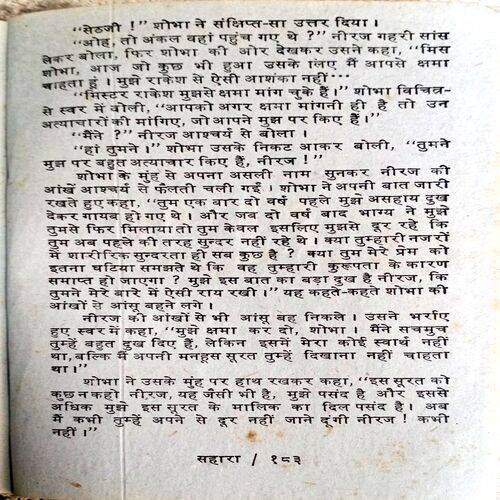 "सेठजी !" शोभा ने संक्षिप्त-सा उत्तर दिया ।
"ओह, तो अंकल वहां पहुंच गए थे ?" नीरज गहरी सांस
लेकर बोला, फिर शोभा की ओर देखकर उसने कहा, "मिस
शोभा, आज जो कुछ भी हुआ उसके लिए मैं आपसे क्षमा
चाहता हूं । मुझे राकेश से ऐसी आशंका नहीं···
"मिस्टर राकेश मुझसे क्षमा मांग चुके हैं ।" शोभा विचित्र-
से स्वर में बोली, "आपको अगर क्षमा मांगनी ही है तो उन
अत्याचारों की मांगिए, जो आपने मुझ पर किए हैं ।"
"मैंने ?" नीरज आश्चर्य से बोला ।
"हां तुमने ।" शोभा उसके निकट आकर बोली, "तुमने
मुझ पर बहुत अत्याचार किए हैं, नीरज !"
शोभा के मुंह से अपना असली नाम सुनकर नीरज की
आंखें आश्चर्य से फैलती चली गईं । शोभा ने अपनी बात जारी
रखते हुए कहा, "तुम एक बार दो वर्ष पहले मुझे असहाय दुख
देकर गायब हो गए थे । और जब दो वर्ष बाद भाग्य ने मुझे
तुमसे फिर मिलाया तो तुम केवल इसलिए मुझसे दूर रहे कि
तुम अब पहले की तरह सुन्दर नहीं रहे थे । क्या तुम्हारी नजरों
में शारीरिक सुन्दरता ही सब कुछ है ? क्या तुम मेरे प्रेम को
इतना घटिया समझते थे कि वह तुम्हारी कुरूपता के कारण
समाप्त हो जाएगा ? मुझे इस बात का बड़ा दुख है नीरज, कि
तुमने मेरे बारे में ऐसी राय रखी ।" यह कहते-कहते शोभा की
आंखों से आंसू बहने लगे ।
नीरज की आंखों से भी आंसू बह निकले । उसने भर्राए
हुए स्वर में कहा, "मुझे क्षमा कर दो, शोभा । मैंने सचमुच
तुम्हें बहुत दुख दिए हैं, लेकिन इसमें मेरा कोई स्वार्थ नहीं
था, बल्कि मैं अपनी मनहूस सूरत तुम्हें दिखाना नहीं चाहता
था ।"
शोभा ने उसके मुंह पर हाथ रखकर कहा, "इस सूरत को
कुछ न कहो नीरज, यह जैसी भी है, मुझे पसंद है और इससे
अधिक मुझे इस सूरत के मालिक का दिल पसंद है । अब
मैं कभी तुम्हें अपने से दूर नहीं जाने दूंगी नीरज ! कभी
नहीं ।"
सहारा / १८३